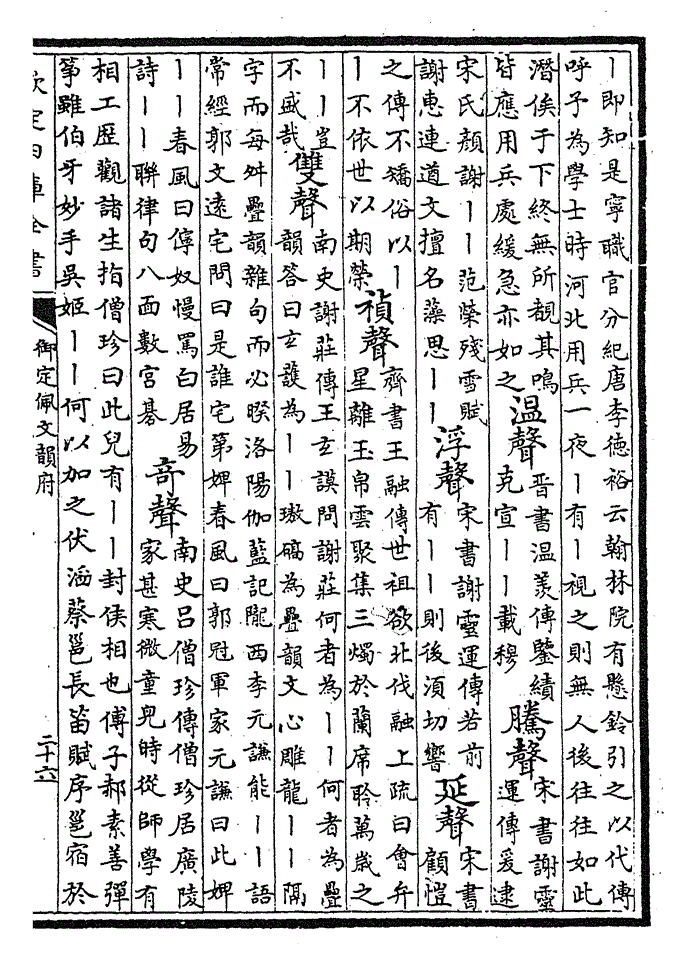 ｜即知是寧職官分紀唐李德裕云翰林院有懸鈴引之以代傳
呼予為學士時河北用兵一夜｜有｜視之則無人後往往如此
潛侯于下終無所覩其鳴
皆應用兵處緩急亦如之
温聲
晋書温羨傳鑒績
克宣｜｜載穆
騰聲
宋書謝靈
運傳爰逮
宋氏顔謝｜｜范榮殘雪賦
謝惠連道文擅名藻思｜｜
浮聲
宋書謝靈運傳若前
有｜｜則後須切響
延聲
宋書
顧愷
之傳不矯俗以｜
｜不依世以期榮
禎聲
齊書王融傳世祖欲北伐融上疏曰會弁
星離玉帛雲聚集三燭於蘭席聆萬歲之
｜｜豈
不盛哉
雙聲
南史謝莊傳王玄謨問謝莊何者為｜｜何者為疊
韻答曰玄護為｜｜璈碻為疊韻文心雕龍｜｜隔
字而每舛疊韻雜句而必暌洛陽伽藍記隴西李元謙能｜｜語
常經郭文遠宅問曰是誰宅第婢春風曰郭冠軍家元謙曰此婢
｜｜春風曰儜奴慢罵白居易
詩｜｜聯律句八面數宫碁
奇聲
南史吕僧珍傳僧珍居廣陵
家甚寒微童兒時從師學有
相工歴觀諸生指僧珍曰此兒有｜｜封侯相也傅子郝素善彈
筝雖伯牙妙手吳姬｜｜何以加之伏滔蔡邕長笛賦序邕宿於
欽定四庫全書
御定佩文韻府
二十六